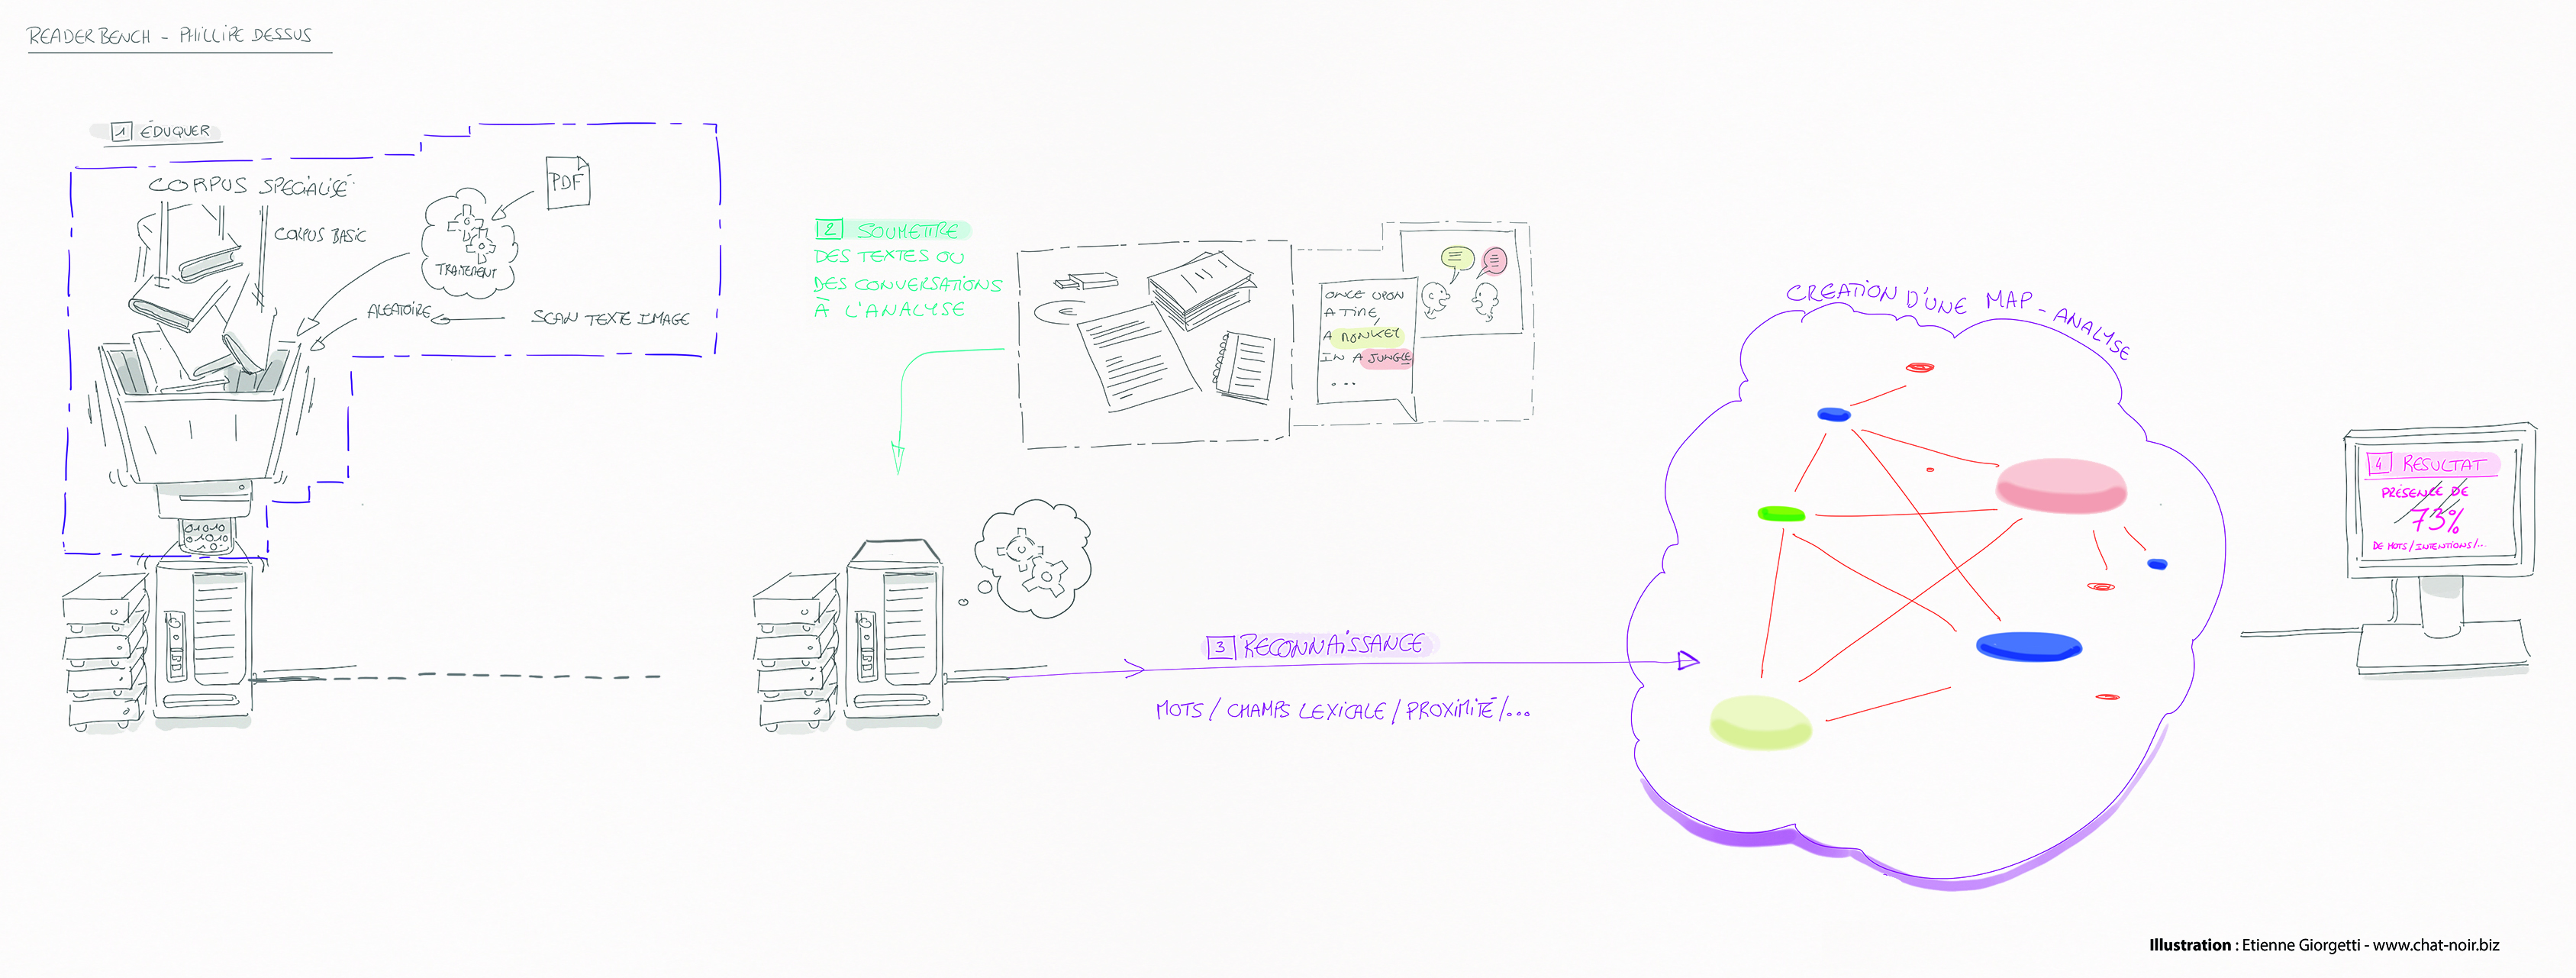 READERBENCH - PHILLIPE DESSUS
1 ÉDUQUER
CORPUS SPECIALISÉ
CORPUS BASIC
PDF
TRAITEMENT
ALEATOIRE
SCAN TEXTE IMAGE
01010
01010
0
2 SOUMETTRE
DES TEXTES OU
DES CONVERSATIONS
À L'ANALYSE
ONCE UPON
A TIME,
A MONKEY
IN A JUNGLE
...
3 RECONNAISSANCE
MOTS / CHAMPS LEXICALE / PROXIMITÉ /...
CREATION D'UNE MAP - ANALYSE
4 RESULTAT
PRÉSENCE DE
73%
DE MOTS / INTENTIONS /...
Illustration : Etienne Giorgetti - www.chat-noir.biz